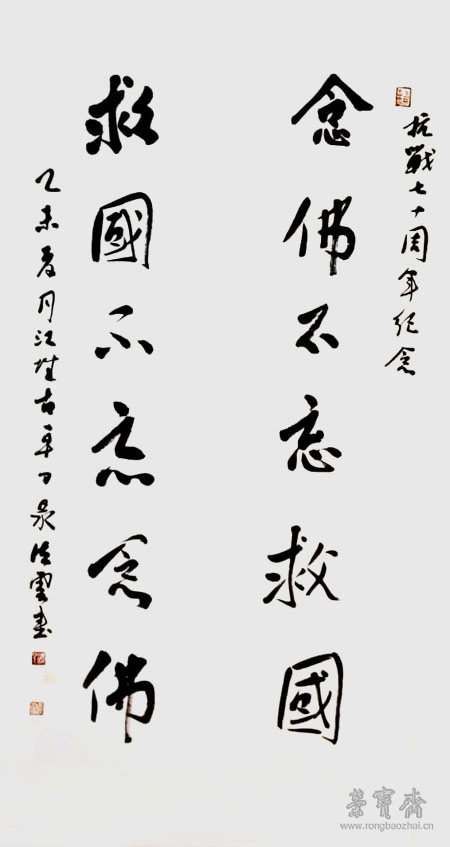 抗戰七十周年纪念
念佛不忘救國
救國不忘念佛
乙未夏月江
雲书
榮寶齋
www.rongbaozhai.cn